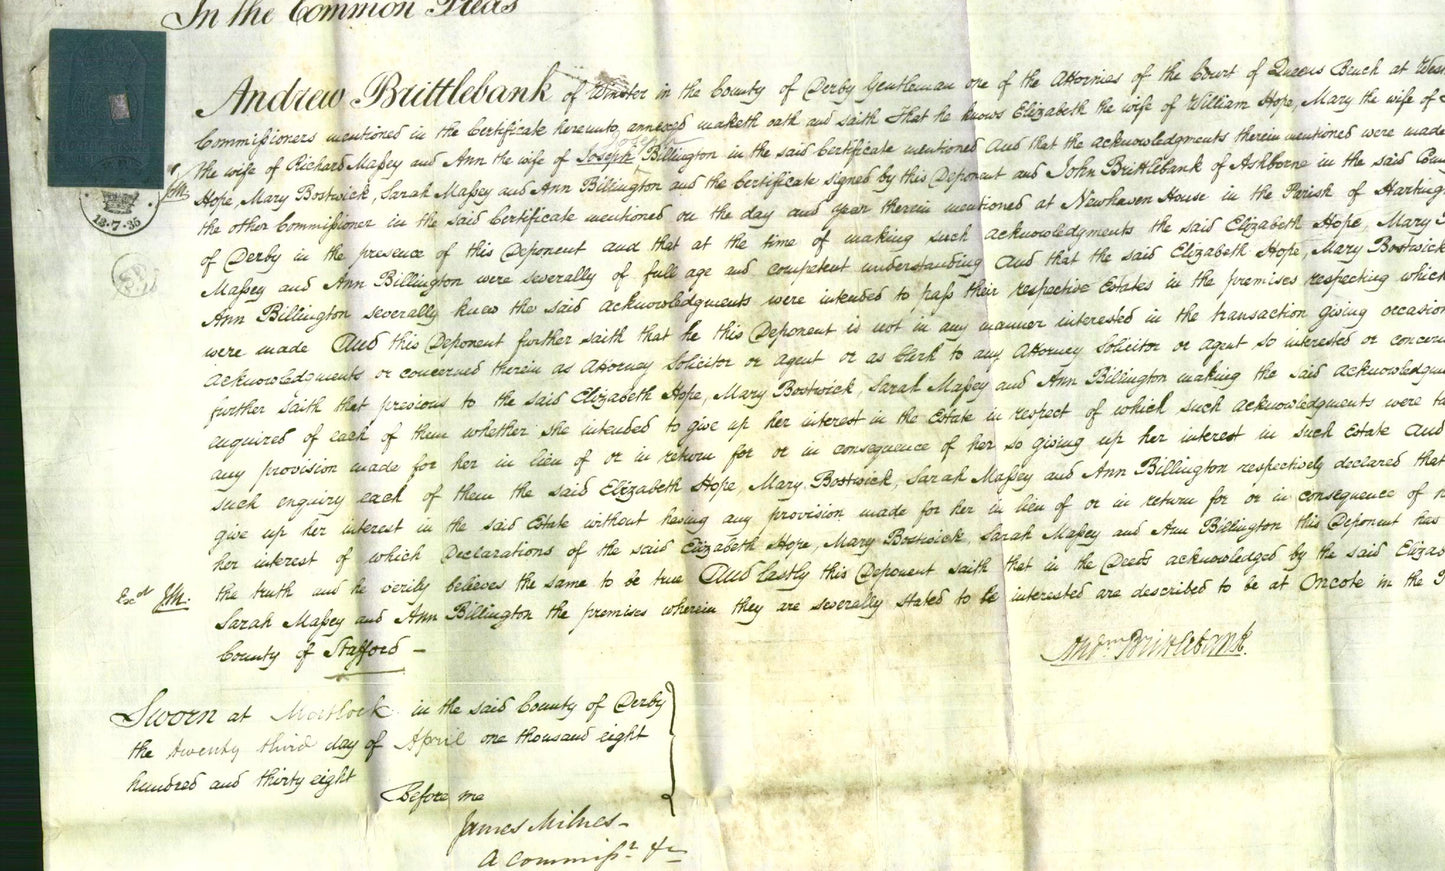 In the Common Pleas
Andrew Brittlebank of Winster in the County of Derby Gentleman one of the Attornies of the Court of Queens Bench at
Commissioners mentioned in the Certificate hereunto annexed maketh oath and saith That he knows Elizabeth the wife of William Hope, Mary the wife of
the wife of Richard Massey and Ann the wife of Joseph Billington in the said Certificate mentioned And that the acknowledgments therein mentioned were made
Hope, Mary Bostwick, Sarah Massey and Ann Billington and the Certificate signed by this Deponent and John Brittlebank of Ashborne in the said
the other Commissioner in the said Certificate mentioned on the day and year therein mentioned at Newhaven House in the Parish of Harting
of Derby in the presence of this Deponent and that at the time of making such acknowledgments the said Elizabeth Hope, Mary
Massey and Ann Billington were severally of full age and competent understanding And that the said Elizabeth Hope, Mary Bostwick
Ann Billington severally knew the said acknowledgments were intended to pass their respective Estates in the premises respecting which
were made And this Deponent further saith that he this Deponent is not in any manner interested in the transaction giving occasion
acknowledgments or concerned therein as Attorney Solicitor or agent or as Clerk to any Attorney Solicitor or agent so interested or concern
further saith that previous to the said Elizabeth Hope, Mary Bostwick, Sarah Massey and Ann Billington making the said acknowledgm
enquired of each of them whether she intended to give up her interest in the Estate in respect of which such acknowledgments were
any provision made for her in lieu of or in return for or in consequence of her so giving up her interest in such Estate And
such enquiry each of them the said Elizabeth Hope, Mary Bostwick, Sarah Massey and Ann Billington respectively declared that
give up her interest in the said Estate without having any provision made for her in lieu of or in return for or in consequence of
her interest of which Declarations of the said Elizabeth Hope, Mary Bostwick, Sarah Massey and Ann Billington this Deponent has
the truth and he verily believes the same to be true And lastly this Deponent saith that in the Deeds acknowledged by the said Eliza
Sarah Massey and Ann Billington the premises wherein they are severally stated to be interested are described to be at Oncote in the
County of Stafford
Andw Brittlebank
Sworn at Matlock in the said County of Derby
the twenty third day of April one thousand eight
hundred and thirty eight
Before me
James Milnes
A Commissr &c
12.7.35